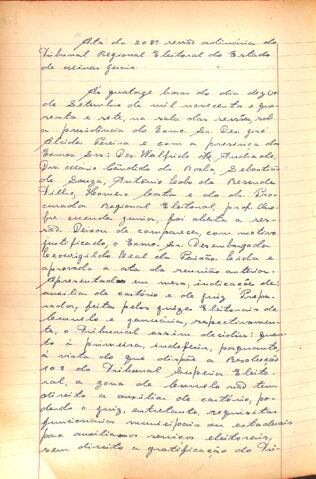 Ata da 208ª sessão ordinária do
Tribunal Regional Eleitoral do Estado
de Minas Gerais.
Às quatorze horas do dia dez de
de Setembro de mil novecentos e qua
renta e sete, na sala das sessões, sob
a presidência do Exmo. Sr. Des. José
Alcides Pereira e com a presença dos
Exmos. Srs: Des. Walfrido de Andrade,
Drs. Cândido da Rocha, Sebastião
de Souza, Antonio Lobo de Resende
Filho, Homero Costa e do dr. Pro
curador Regional Eleitoral, prof.
Júnior, foi aberta a ses
são. Deixou de comparecer, com motivo
justificado, o Exmo. Sr. Desembargador
Leovigildo Leal da Paixão. Lida e
aprovada a ata da reunião anterior.
Apresentadas em mesa, indicações de:
auxiliar de cartório e de juiz Prepa-
rador, feitas pelos juizes Eleitorais de
e respectivamen-
te, o Tribunal assim decidiu: quan
to à primeira, indeferir, porquanto,
à vista do que dispõe a Resolução
103 do Tribunal Superior Eleito-
ral, a zona de não tem
direito a auxiliar de cartório, po-
dendo o juiz, entretanto, requisitar
funcionários municipais ou estaduais
para auxiliar os serviços eleitorais,
sem direito a gratificação do Tri-